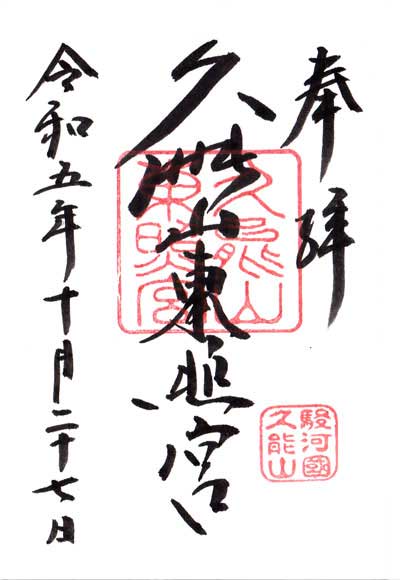 奉拝
久能山東照宮
久能山
東照宮
駿河國
久能山
令和五年十月二十七日